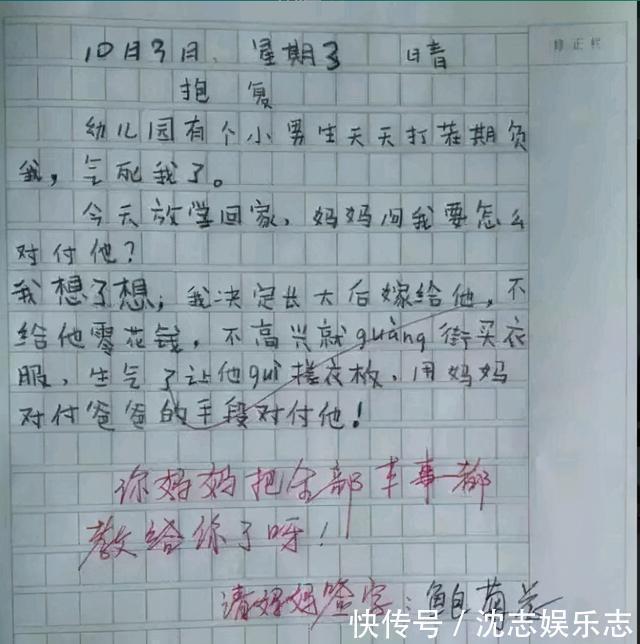 修正栏
10月3日. 星期3 晴
抱复
幼儿园有个小男生天天打茬期负
我，气死我了。
今天放学回家，妈妈问我要怎么
对付他？
我想了想，我决定长大后嫁给他，不
给他零花钱，不高兴就guàng街买衣
服，生气了让他guì搓衣板，用妈妈
对付爸爸的手段对付他！
你妈妈把全部本事都
教给你了呀！
请妈妈签字：
快传号／沈志娱乐志